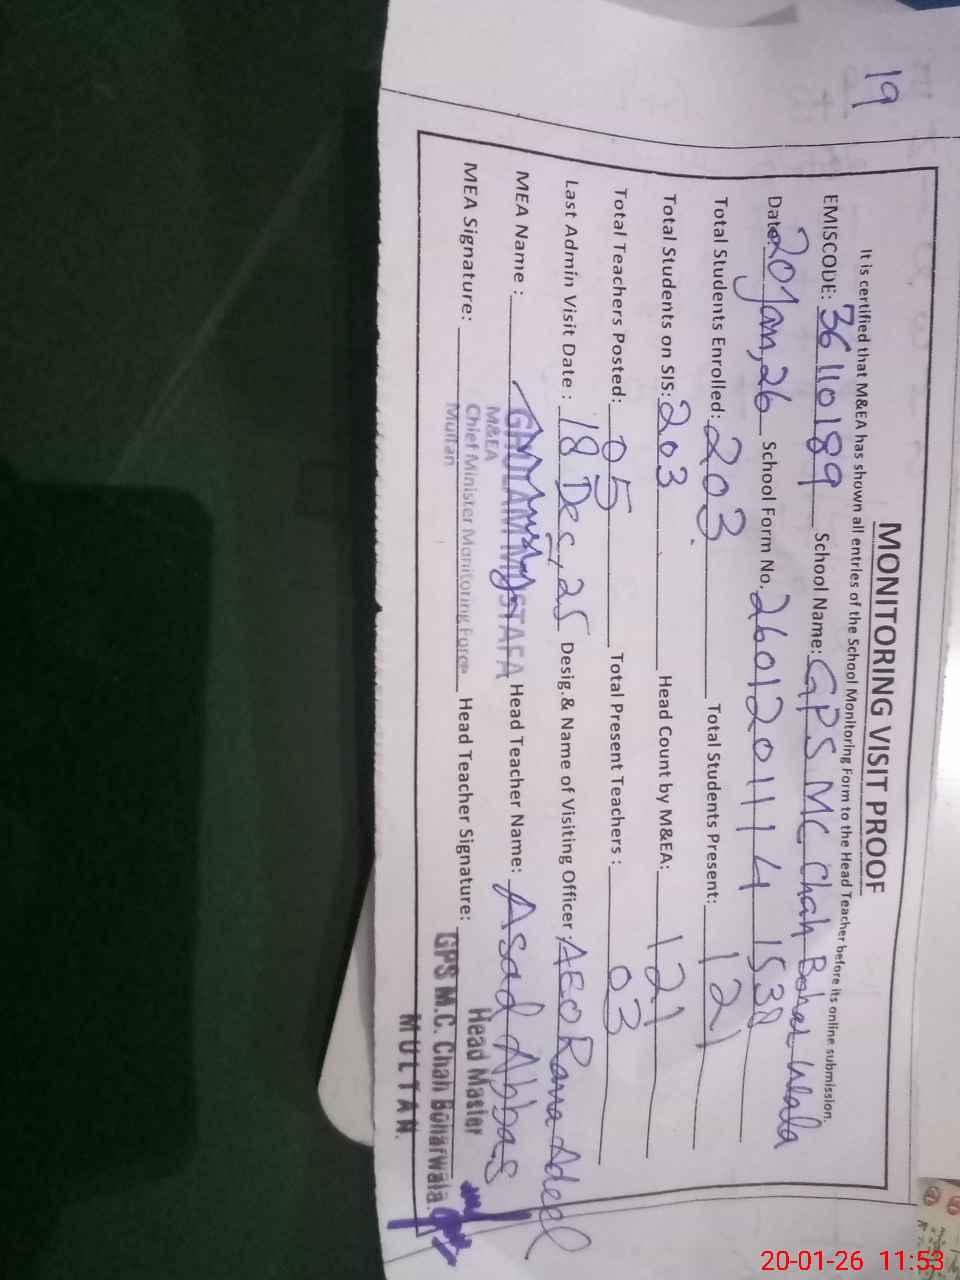 19
MONITORING VISIT PROOF
It is certified that M&EA has shown all entries of the School Monitoring Form to the Head Teacher before its online submission.
EMISCODE: 36110189 School Name: GPS MC Chah Bohar Wala
Date: 20 Jan, 26 School Form No. 26012011141538
Total Students Enrolled: 203 Total Students Present: 121
Total Students on SIS: 203 Head Count by M&EA: 121
Total Teachers Posted: 05 Total Present Teachers : 03
Last Admin Visit Date : 18 Dec, 25 Desig.& Name of Visiting Officer : AEO Rana Adeel
MEA Name : GHULAM MUSTAFA Head Teacher Name: Asad Abbas
M&EA
MEA Signature: Chief Minister Monitoring Force Head Teacher Signature:
Multan
Head Master
GPS M.C. Chah Boharwala
MULTAN.
20-01-26 11:53